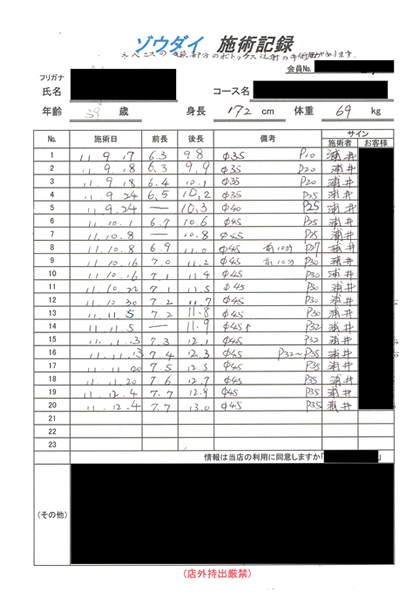 ゾウダイ 施術記録
会員No.
フリガナ
氏名
コース名
年齢 歳 身長 172 cm 体重 69 kg
No. 施術日 前長 後長 備考 サイン
施術者 お客様
1 11.9.17 6.3 9.8 φ35 P10 浦井
2 11.9.18 6.3 9.9 φ35 P20 浦井
3 11.9.18 6.4 10.1 φ35 P20 浦井
4 11.9.24 6.5 10.2 φ35 P25 浦井
5 11.9.24 — 10.3 φ40 P25 浦井
6 11.10.1 6.7 10.6 φ45 P25 浦井
7 11.10.8 — 10.8 φ45 P25 浦井
8 11.10.8 6.9 11.0 φ45 前10分 P27 浦井
9 11.10.16 7.0 11.2 φ45 前10分 P30 浦井
10 11.10.16 7.1 11.4 φ45 P30 浦井
11 11.10.22 7.1 11.5 φ45 P30 浦井
12 11.10.30 7.2 11.7 φ45 P30 浦井
13 11.11.5 7.2 11.8 φ45 P30 浦井
14 11.11.5 — 11.9 φ45 P32 浦井
15 11.11.13 7.3 12.1 φ45 P32 浦井
16 11.11.13 7.4 12.3 φ45 P32～P35 浦井
17 11.11.20 7.5 12.5 φ45 P35 浦井
18 11.11.20 7.6 12.7 φ45 P35 浦井
19 11.12.4 7.7 12.9 φ45 P35 浦井
20 11.12.4 7.7 13.0 φ45 P35 浦井
21
22
23
情報は当店の利用に同意しますか「 」
（その他）
（店外持出厳禁）